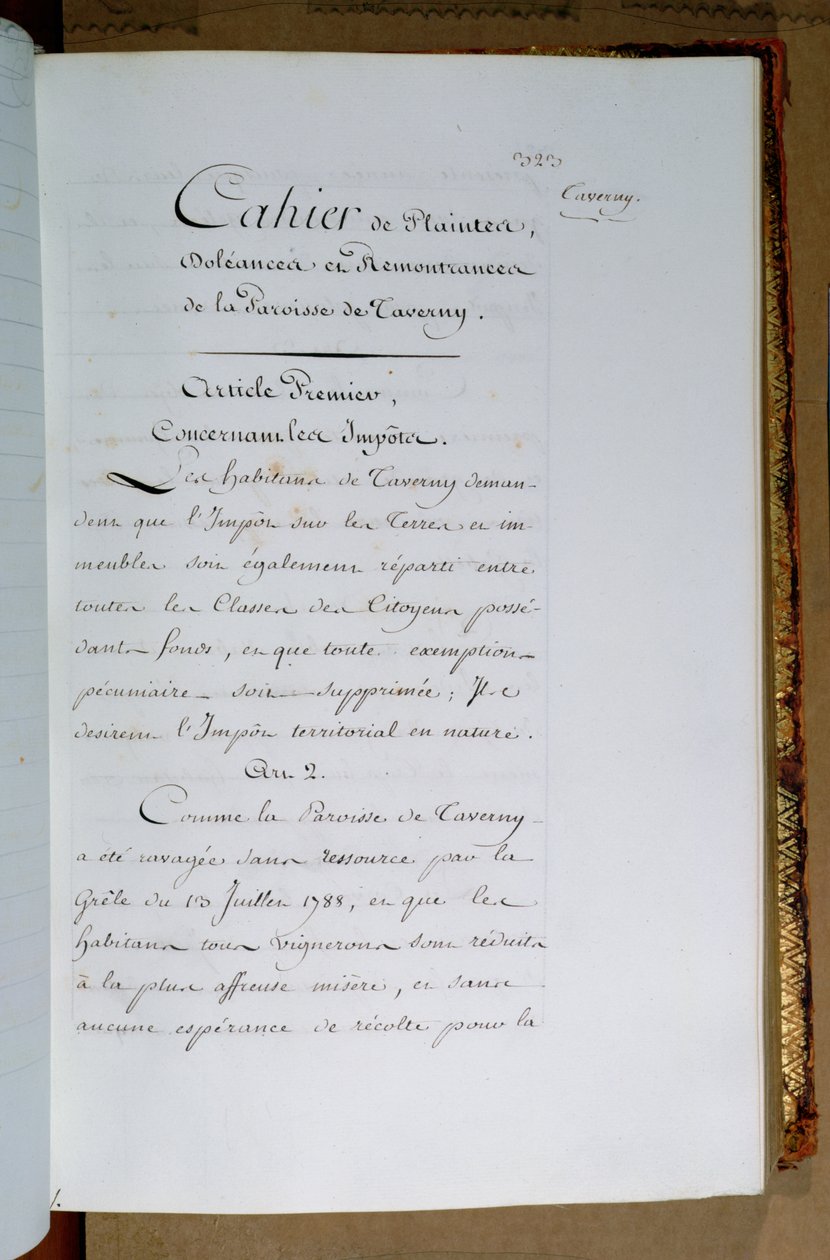 323
Taverny.
Cahier de Plaintes,
Doléances et Remontrances
de la Paroisse de Taverny.
Article Premier,
Concernant les Impôts.
Les habitans de Taverny deman-
dent que l'Impôt sur les Terres et im-
meubles soit également réparti entre
toutes les Classes des Citoyens possé-
dants fonds, et que toute exemption
pécuniaire soit supprimée; Ils
desirent l'Impôt territorial en nature.
Art 2.
Comme la Paroisse de Taverny
a été ravagée sans ressource par la
Grêle du 13 Juillet 1788, et que les
habitans tous vignerons sont réduits
à la plus affreuse misère, et sans
aucune espérance de récolte pour la